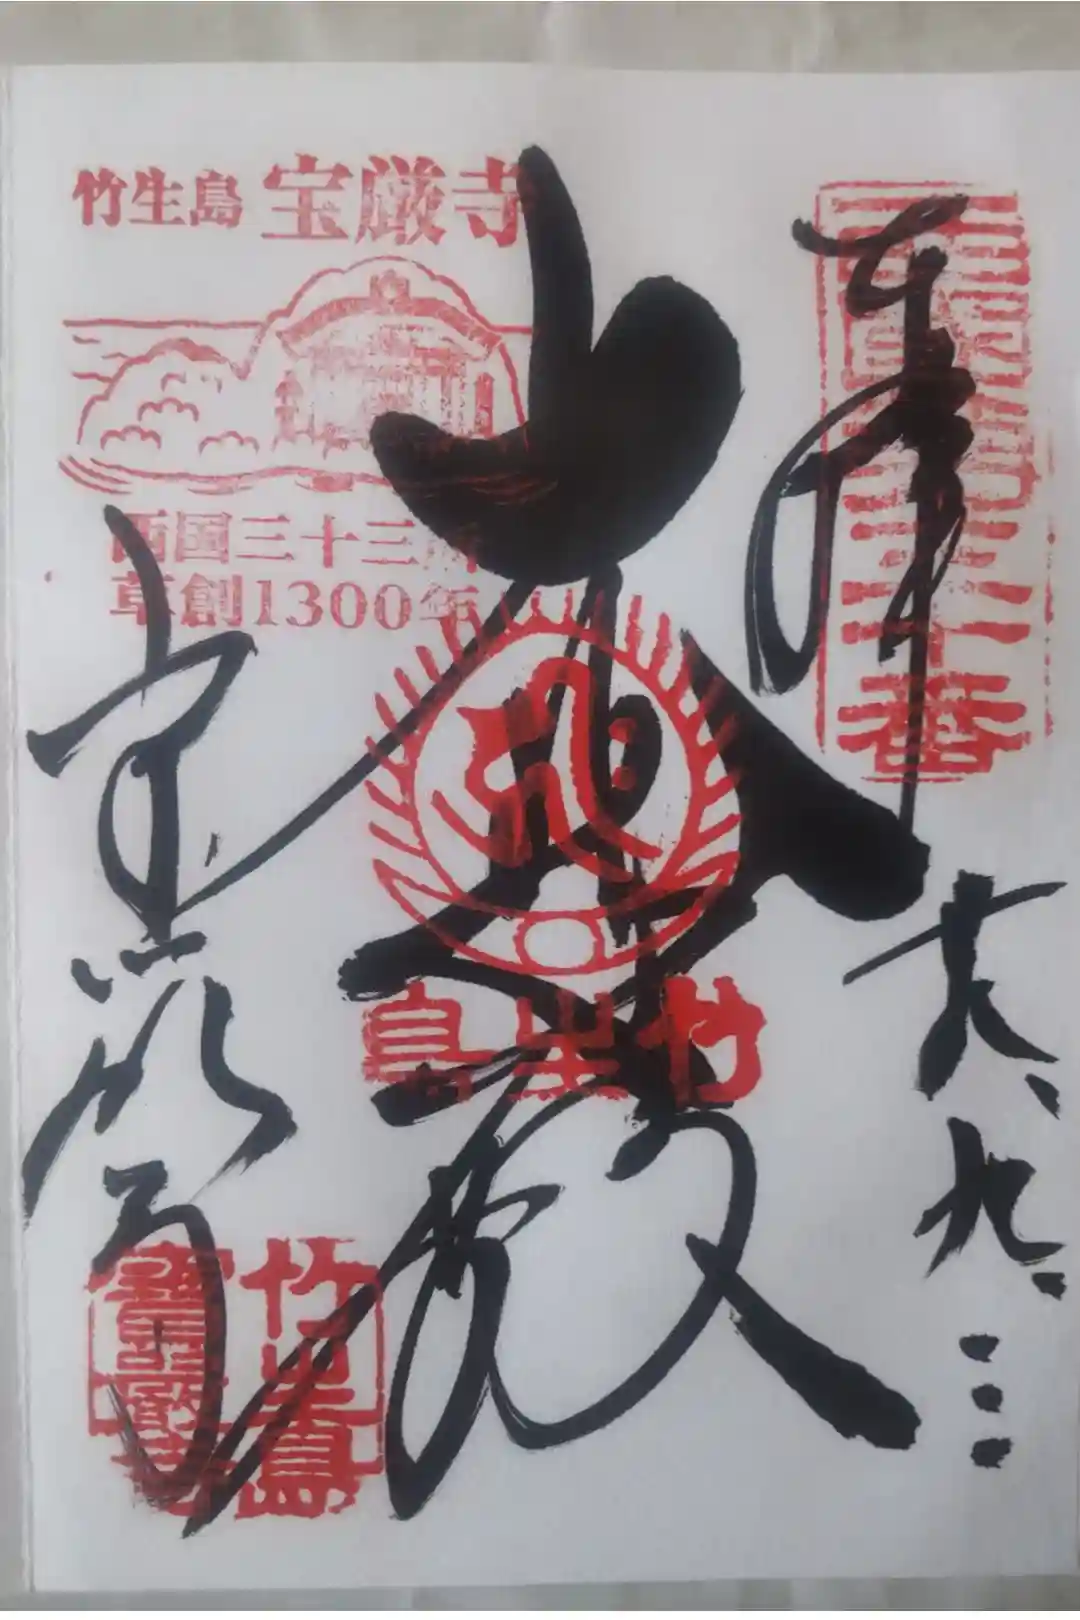 奉拝
三十番
六、九、
大悲殿
竹生島
竹生島 宝厳寺
西国三十三所
草創1300年
宝厳寺
竹生島
寶嚴寺